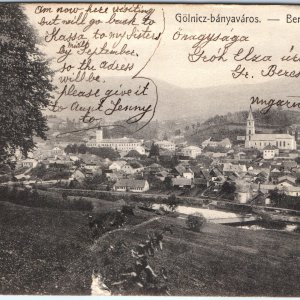 Gölnicz-bányaváros. — Ber
Am now here visiting
but will go back to
Kassa to my sisters
by September.
so the address
will be.
Please give
a kiss to
Aunt Jenny
Nagysága
Gróf Elza ú
Gr. Berc
Ungarn